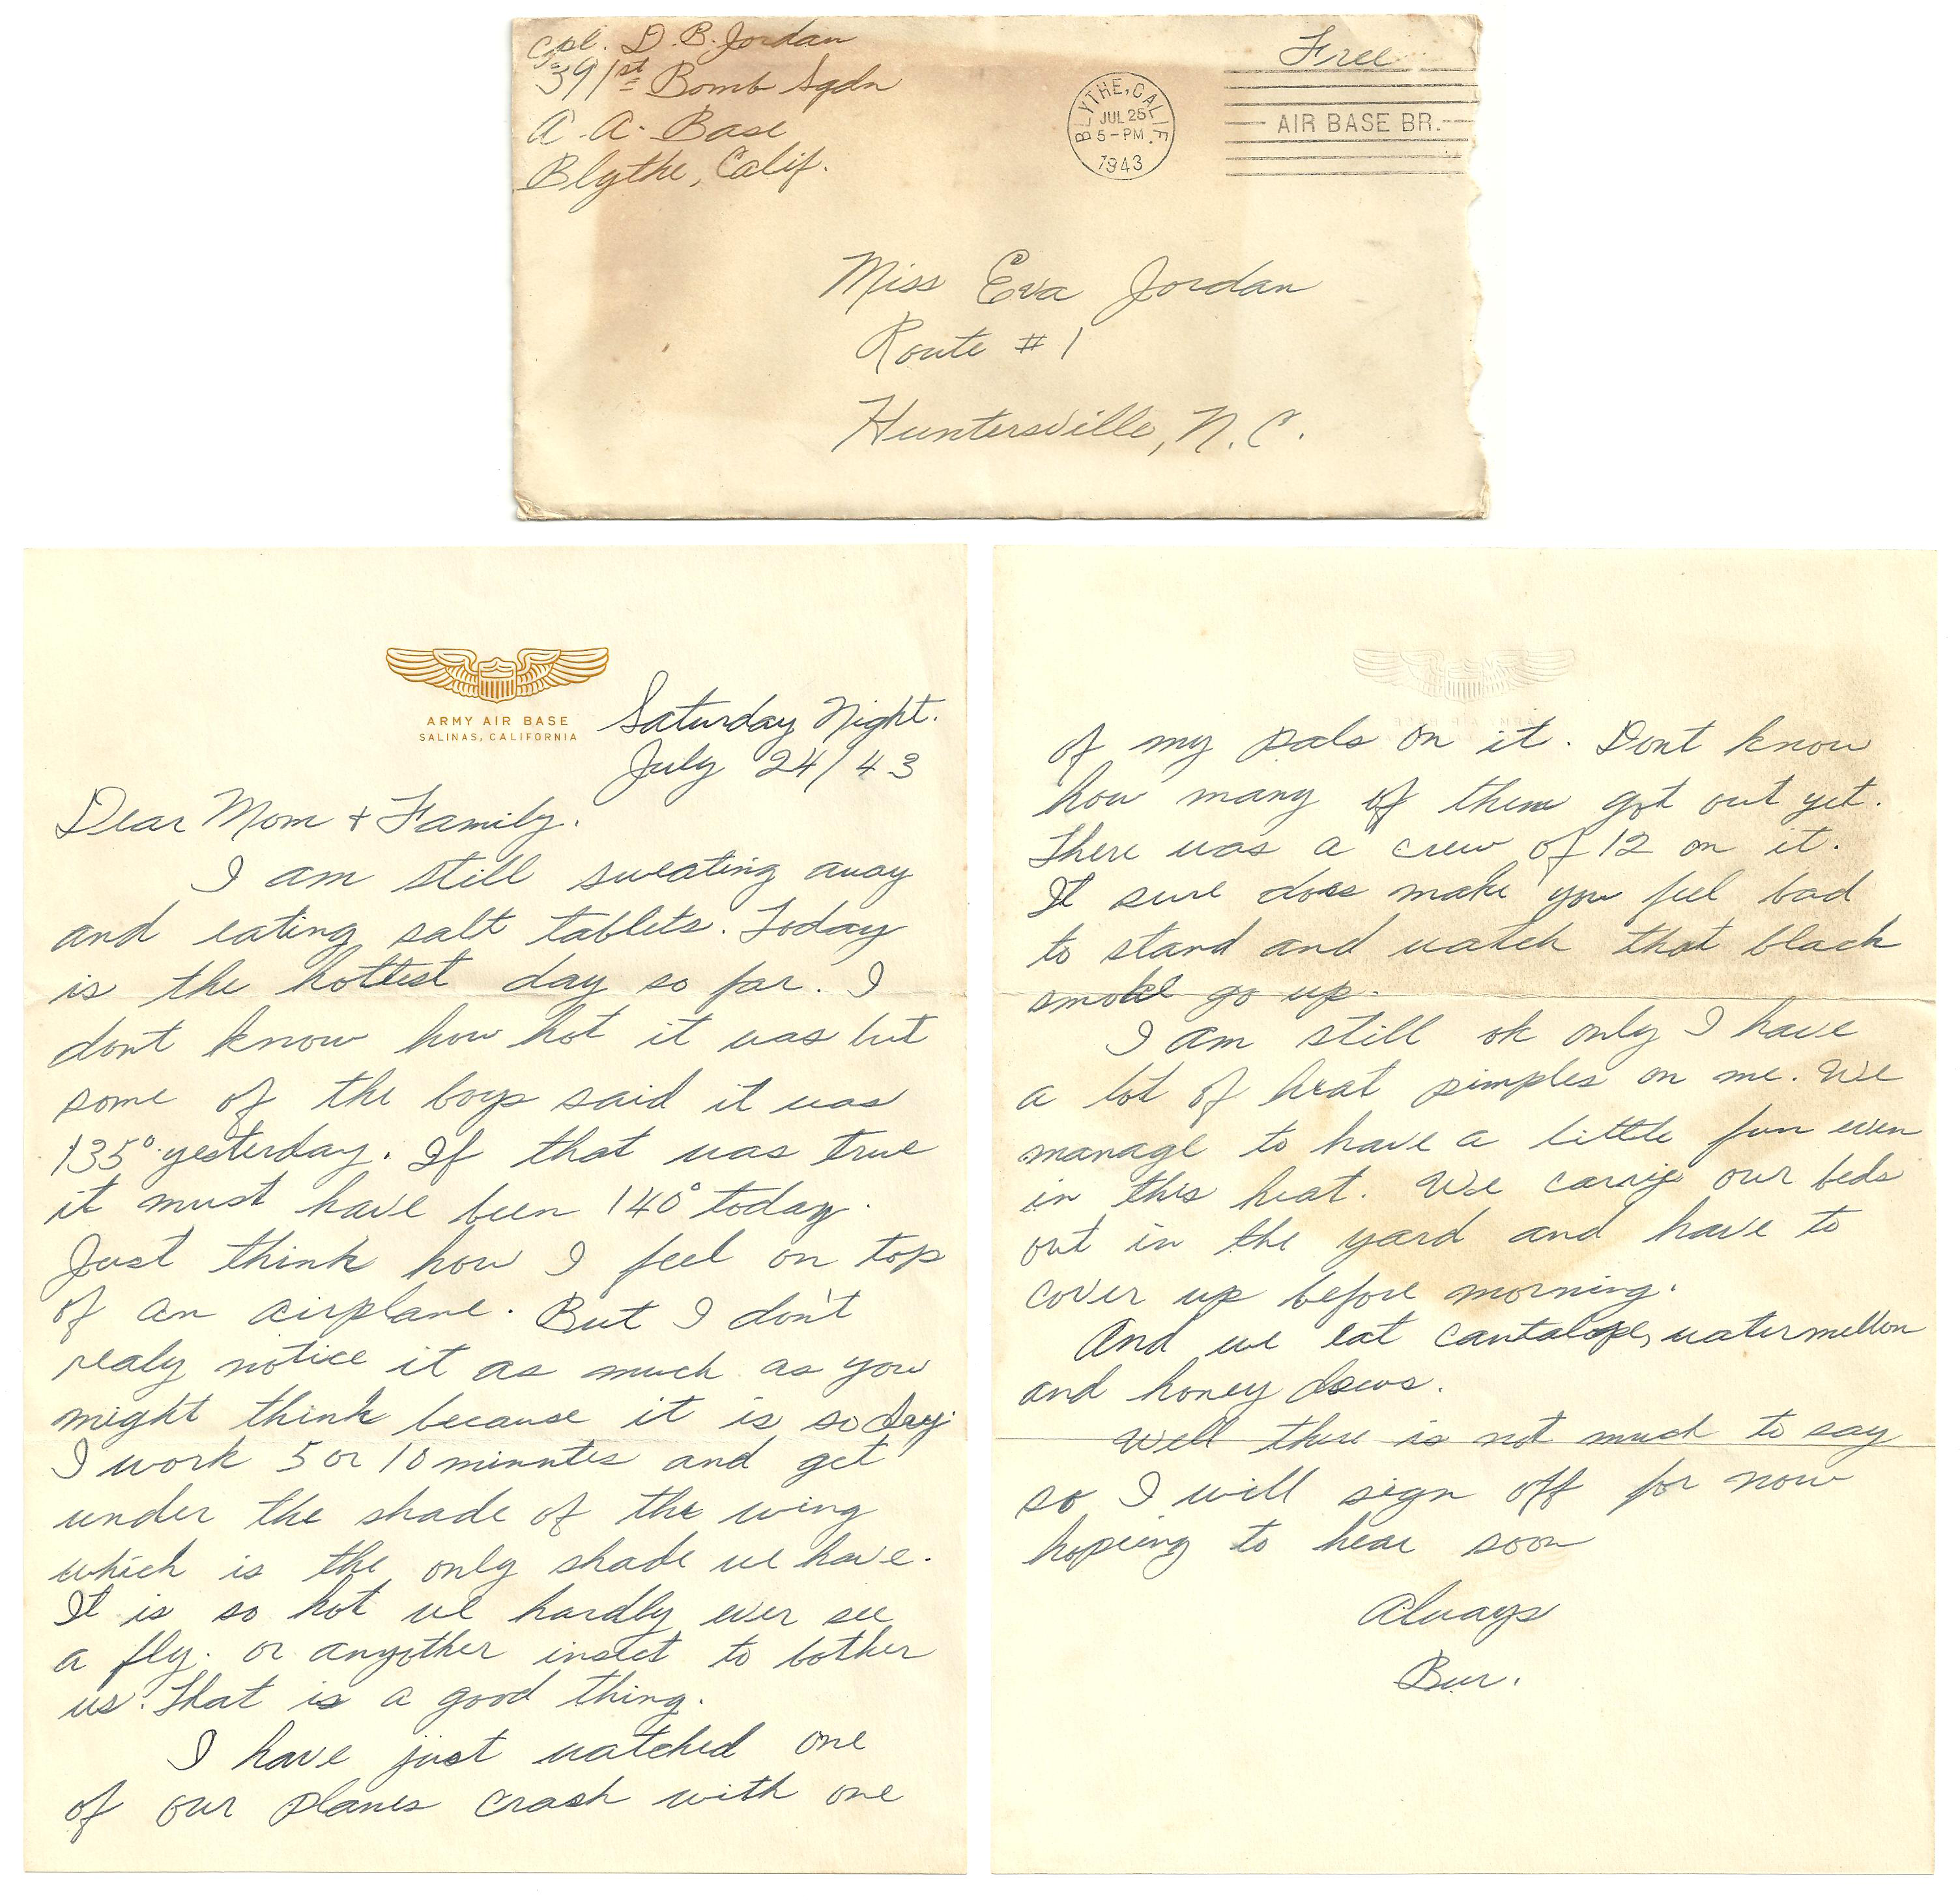 Cpl. D. B. Jordan
391st Bomb Sqdn
A. A. Base
Blythe, Calif.
BLYTHE, CALIF.
JUL 25
5-PM
1943
Free
AIR BASE BR.
Miss Eva Jordan
Route #1
Huntersville, N.C.
ARMY AIR BASE
SALINAS, CALIFORNIA
Saturday Night.
July 24/43
Dear Mom + Family.
I am still sweating away
and eating salt tablets. Today
is the hottest day so far. I
dont know how hot it was but
some of the boys said it was
135° yesterday. If that was true
it must have been 140° today.
Just think how I feel on top
of an airplane. But I don't
realy notice it as much as you
might think because it is so dry.
I work 5 or 10 minutes and get
under the shade of the wing
which is the only shade we have.
It is so hot we hardly ever see
a fly. or anyother insect to bother
us. That is a good thing.
I have just watched one
of our planes crash with one
of my pals on it. Dont know
how many of them got out yet.
There was a crew of 12 on it.
It sure does make you feel bad
to stand and watch that black
smoke go up.
I am still ok only I have
a lot of heat pimples on me. We
manage to have a little fun even
in this heat. We carry our beds
out in the yard and have to
cover up before morning.
And we eat cantalope, watermellon
and honey dews.
Well there is not much to say
so I will sign off for now
hopeing to hear soon
Always
Bur.